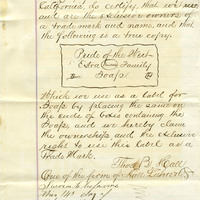 California, do certify that we use
and are the exclusive owners of
a trade mark and name, and that
the following is a true copy.
Pride of the West
Extra Family
Soap
Which we use as a label for
Soaps by placing the same on
the ends of boxes containing the
Soaps, and we hereby claim
the ownership and the exclusive
right to use this label as a
Trade Mark.
Thos B. Hall
One of the firm of Hall